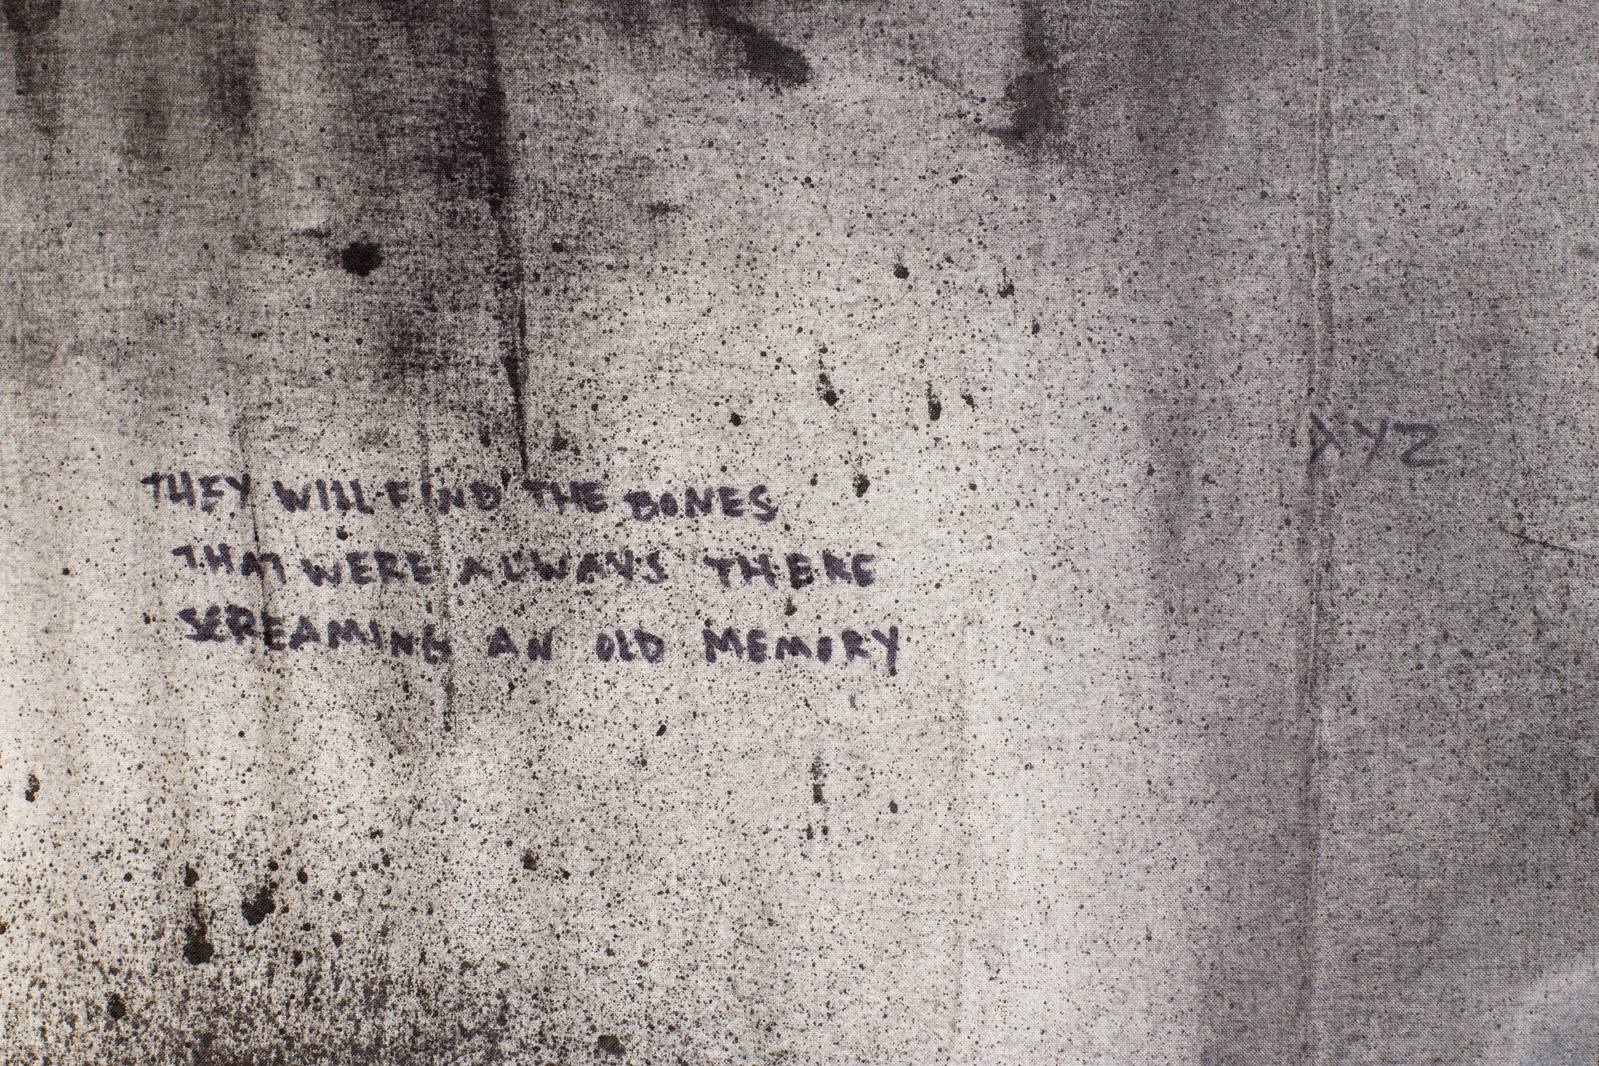 THEY WILL FIND THE BONES
THAT WERE ALWAYS THERE
SCREAMING AN OLD MEMORY
XYZ